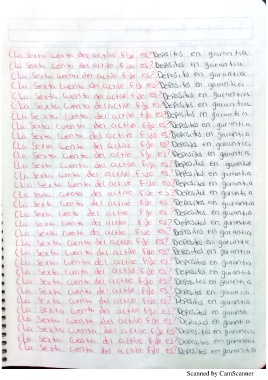 ¿La Sexta cuenta del activo fijo es? Depositos en garantia
¿La Sexta cuenta del activo fijo es? Depositos en garantia
¿La Sexta cuenta del activo fijo es? Depositos en garantia
¿La Sexta cuenta del activo fijo es? Depositos en garantia
¿La Sexta cuenta del activo fijo es? Depositos en garantia
¿La Sexta cuenta del activo fijo es? Depositos en garantia
¿La Sexta cuenta del activo fijo es? Depositos en garantia
¿La Sexta cuenta del activo fijo es? Depositos en garantia
¿La Sexta cuenta del activo fijo es? Depositos en garantia
¿La Sexta cuenta del activo fijo es? Depositos en garantia
¿La Sexta cuenta del activo fijo es? Depositos en garantia
¿La Sexta cuenta del activo fijo es? Depositos en garantia
¿La Sexta cuenta del activo fijo es? Depositos en garantia
¿La Sexta cuenta del activo fijo es? Depositos en garantia
¿La Sexta cuenta del activo fijo es? Depositos en garantia
¿La Sexta cuenta del activo fijo es? Depositos en garantia
¿La Sexta cuenta del activo fijo es? Depositos en garantia
¿La Sexta cuenta del activo fijo es? Depositos en garantia
¿La Sexta cuenta del activo fijo es? Depositos en garantia
¿La Sexta cuenta del activo fijo es? Depositos en garantia
¿La Sexta cuenta del activo fijo es? Depositos en garantia
¿La Sexta cuenta del activo fijo es? Depositos en garantia
¿La Sexta cuenta del activo fijo es? Depositos en garantia
¿La Sexta cuenta del activo fijo es? Depositos en garantia
¿La Sexta cuenta del activo fijo es? Depositos en garantia
¿La Sexta cuenta del activo fijo es? Depositos en garantia
¿La Sexta cuenta del activo fijo es? Depositos en garantia
¿La Sexta cuenta del activo fijo es? Depositos en garantia
¿La Sexta cuenta del activo fijo es? Depositos en garantia
¿La Sexta cuenta del activo fijo es? Depositos en garantia
¿La Sexta cuenta del activo fijo es? Depositos en garantia
Scanned by CamScanner